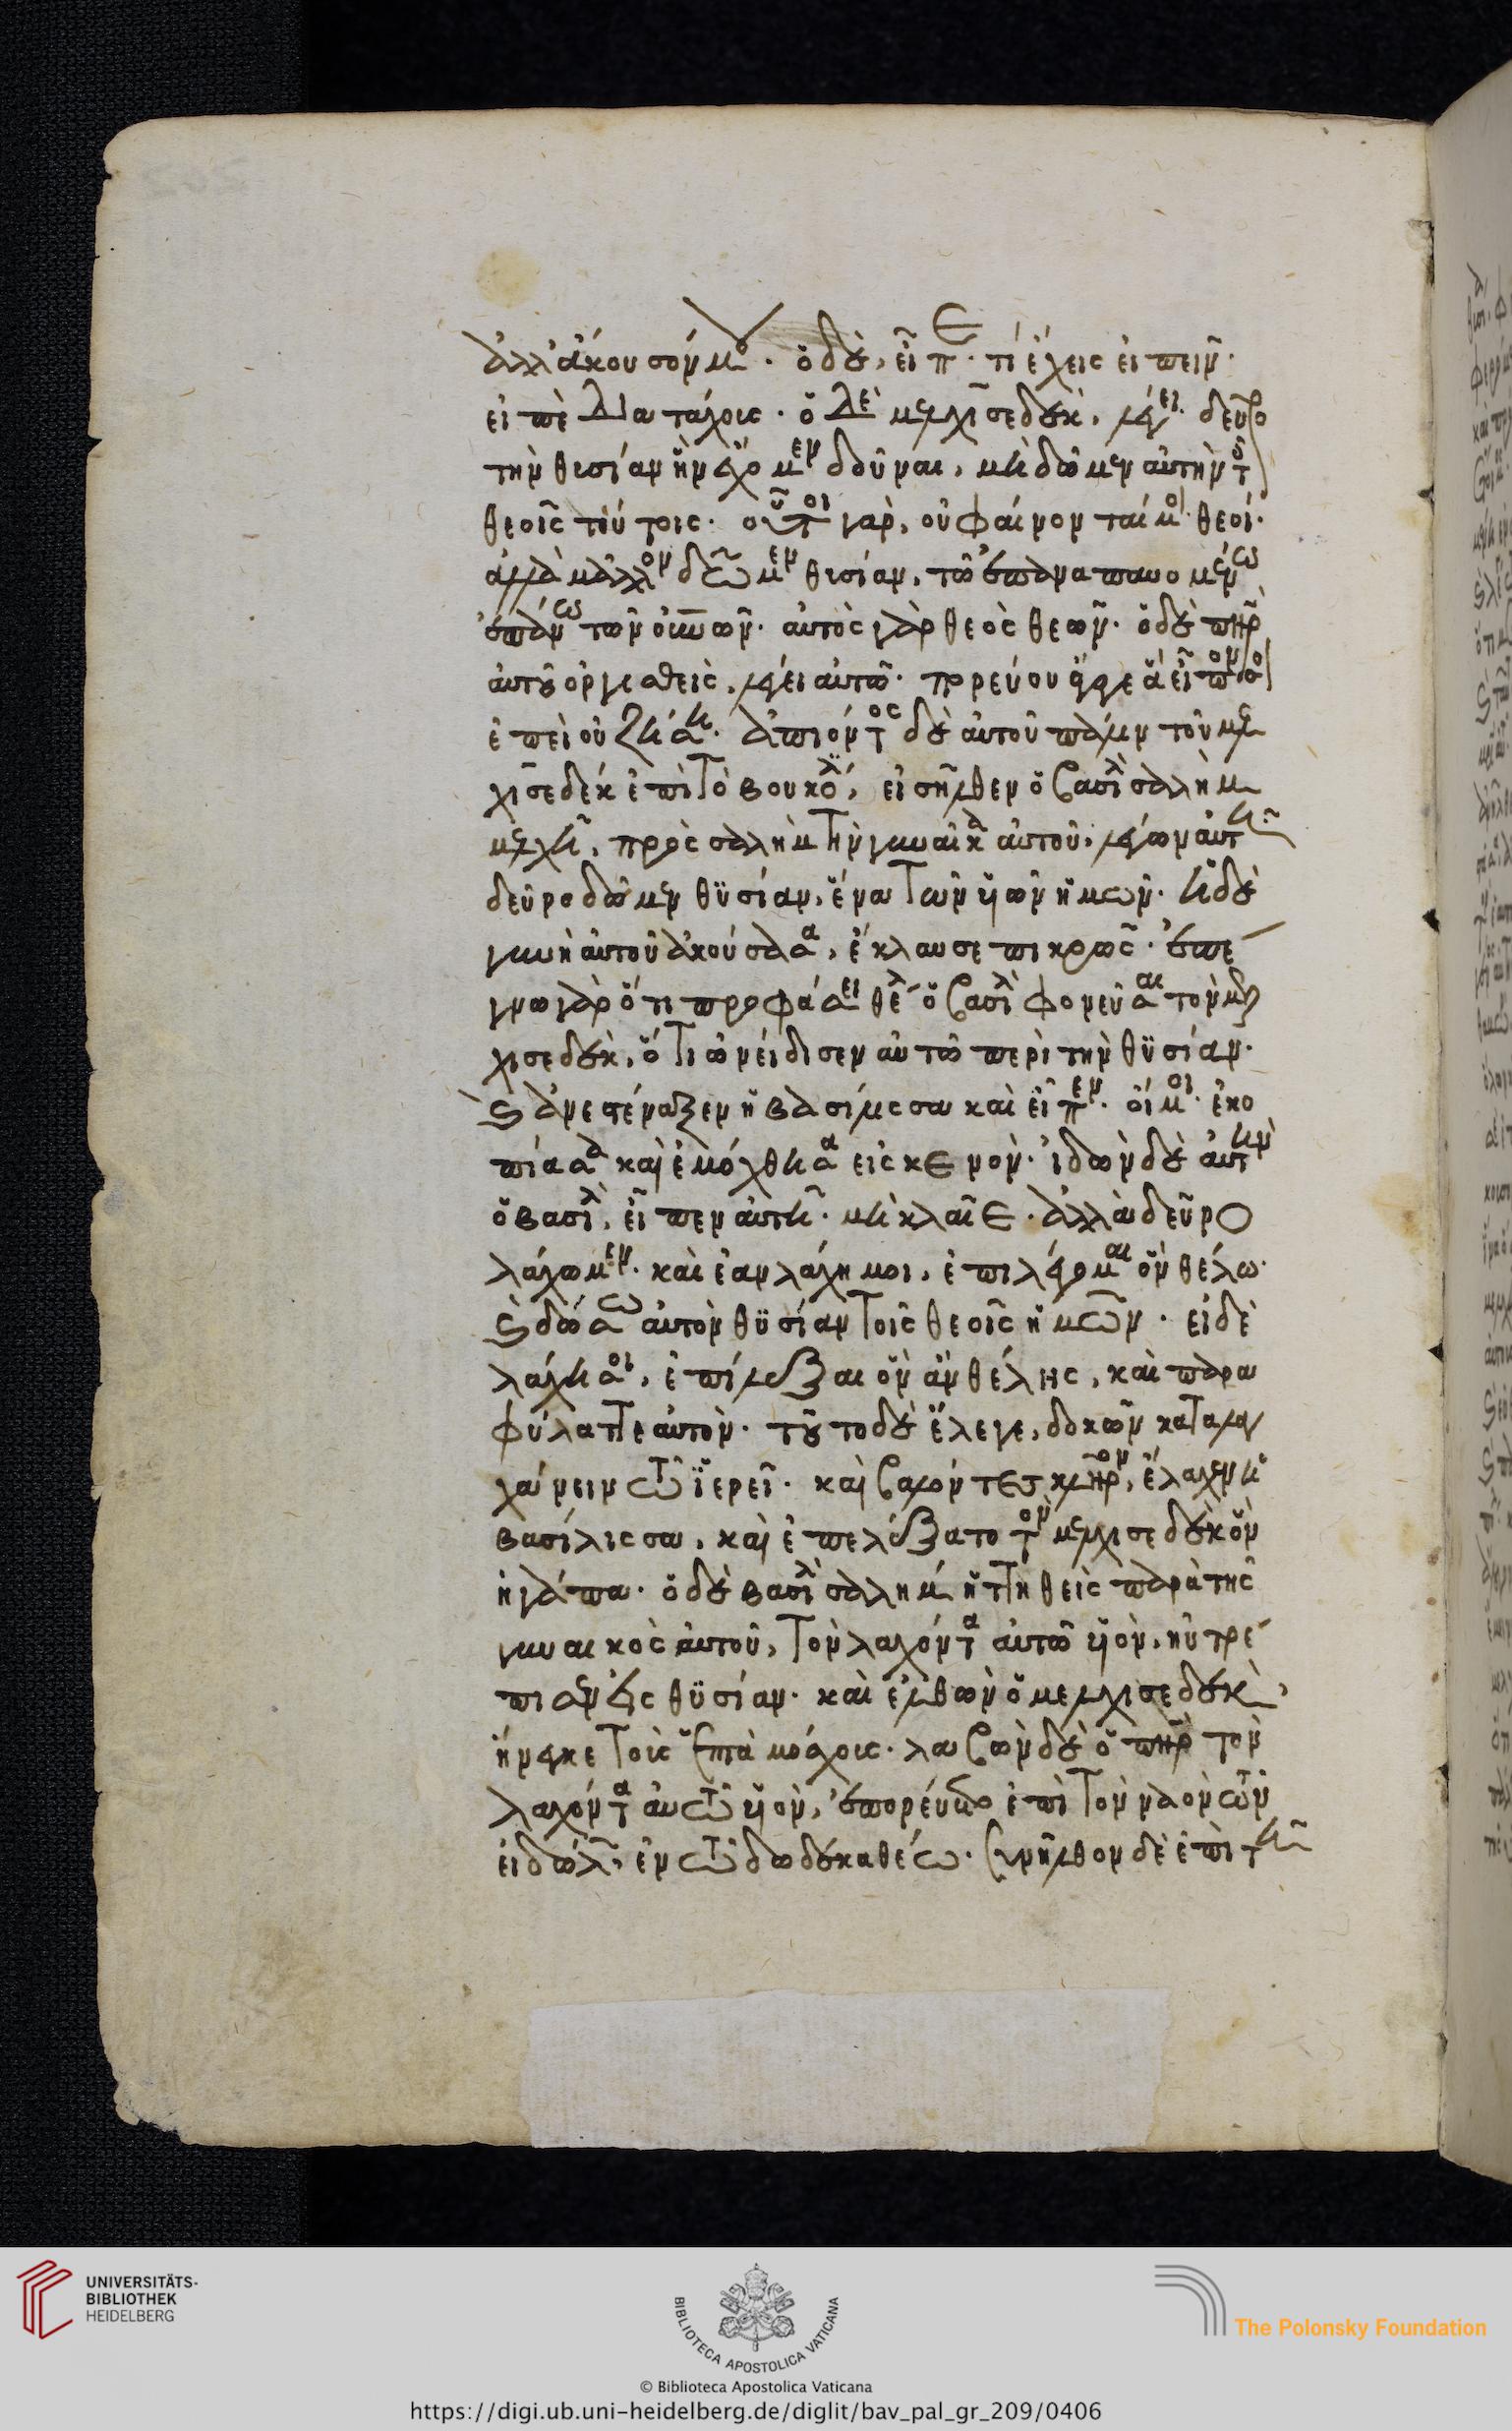 ἀλλ' ἄκουσόν μου. ὁ δὲ, εἶπε. τί ἔχεις εἰπεῖν.
εἰπὲ διὰ τάχους. ὁ δὲ μελχισεδὲκ, λέγει. δεῦρο
τὴν θισίαν ἣν ἔχομεν δοῦναι, μὴ δῶμεν αὐτὴν τοῖς
θεοῖς τούτοις. οὗτοι γὰρ, οὐ φαίνονταί μοι θεοί.
ἀλλὰ μᾶλλον δῶμεν θισίαν, τῶ ἐπαναπαυομένω
ἐπάνω τῶν οὐνῶν. αὐτὸς γὰρ θεὸς θεῶν. ὁ δὲ πηρ
αὐτοῦ ὀργισθεὶς, λέγει αὐτῶ. πορεύου φέρε ἃ εἶπόν σοι
ἐπεὶ οὐ ζήσης. ἀπιόντος δὲ αὐτοῦ πάλιν τοῦ μελ
χισεδὲκ ἐπὶ τὸ βουκόλιον, εἰσῆλθεν ὁ βασιλεὺς σαλὴμ
μελχὴ, πρὸς σαλὴμ τὴν γυναῖκα αὐτοῦ, λέγων αὐτῆ
δεῦρο δῶμεν θϋσίαν, ἕνα τῶν ὑιῶν ἡμῶν. ἡ δὲ
γυνὴ αὐτοῦ ἀκούσασα, ἔκλαυσε πικρῶς. ἐπέ
γνω γὰρ ὅτι προφάσει θέλει ὁ βασιλεὺς φονεῦσαι τὸν μελ
χισεδὲκ, ὅτι ὠνείδισεν αὐτῶ περὶ τὴν θϋσίαν.
καὶ ἀνεστέναξεν ἡ βασίλισσα καὶ εἶπεν. οἴμοι. ἐκο
πίασα καὶ ἐμόχθησα εἰς κενόν. ἰδὼν δὲ αὐτὴν
ὁ βασιλεὺς, εἶπεν αὐτῆ. μὴ κλαῖε. ἀλλὰ δεῦρο
λάχωμεν. καὶ ἐὰν λάχη μοι, ἐπιλέξομαι ὃν θέλω.
καὶ δώσω αὐτὸν θϋσίαν τοῖς θεοῖς ἡμῶν. εἰ δὲ
λάχη σοι, ἐπίλεξαι ὃν ἂν θέλης, καὶ παρα
φύλαττε αὐτόν. τοῦτο δὲ ἔλεγε, δοκῶν καταλαγ
χάνειν τῶ ἱερεῖ. καὶ βαλόντες κλῆρον, ἔλαχεν ἡ
βασίλισσα, καὶ ἐπελέξατο τὸν μελχισεδὲκ ὃν
ἠγάπα. ὁ δὲ βασιλεὺς σαλὴμ ἡττηθεὶς παρὰ τῆς
γυναικὸς αὐτοῦ, τὸν λαχόντα αὐτῶ ὑιὸν, ηὐτρέ
πισεν εἰς θϋσίαν. καὶ ἐλθὼν ὁ μελχισεδὲκ,
ἤνεγκε τοὺς ἑπτὰ μόσχους. λαβὼν δὲ ὁ πηρ τὸν
λαχόντα αὐτῶ ὑιὸν, ἐπορεύετο ἐπὶ τὸν ναὸν τῶν
εἰδώλων, ἐν τῶ δωδεκαθέω. συνῆλθον δὲ ἐπὶ τῆ
UNIVERSITÄTS-
BIBLIOTHEK
HEIDELBERG
BIBLIOTECA APOSTOLICA VATICANA
The Polonsky Foundation
© Biblioteca Apostolica Vaticana
https://digi.ub.uni-heidelberg.de/diglit/bav_pal_gr_209/0406